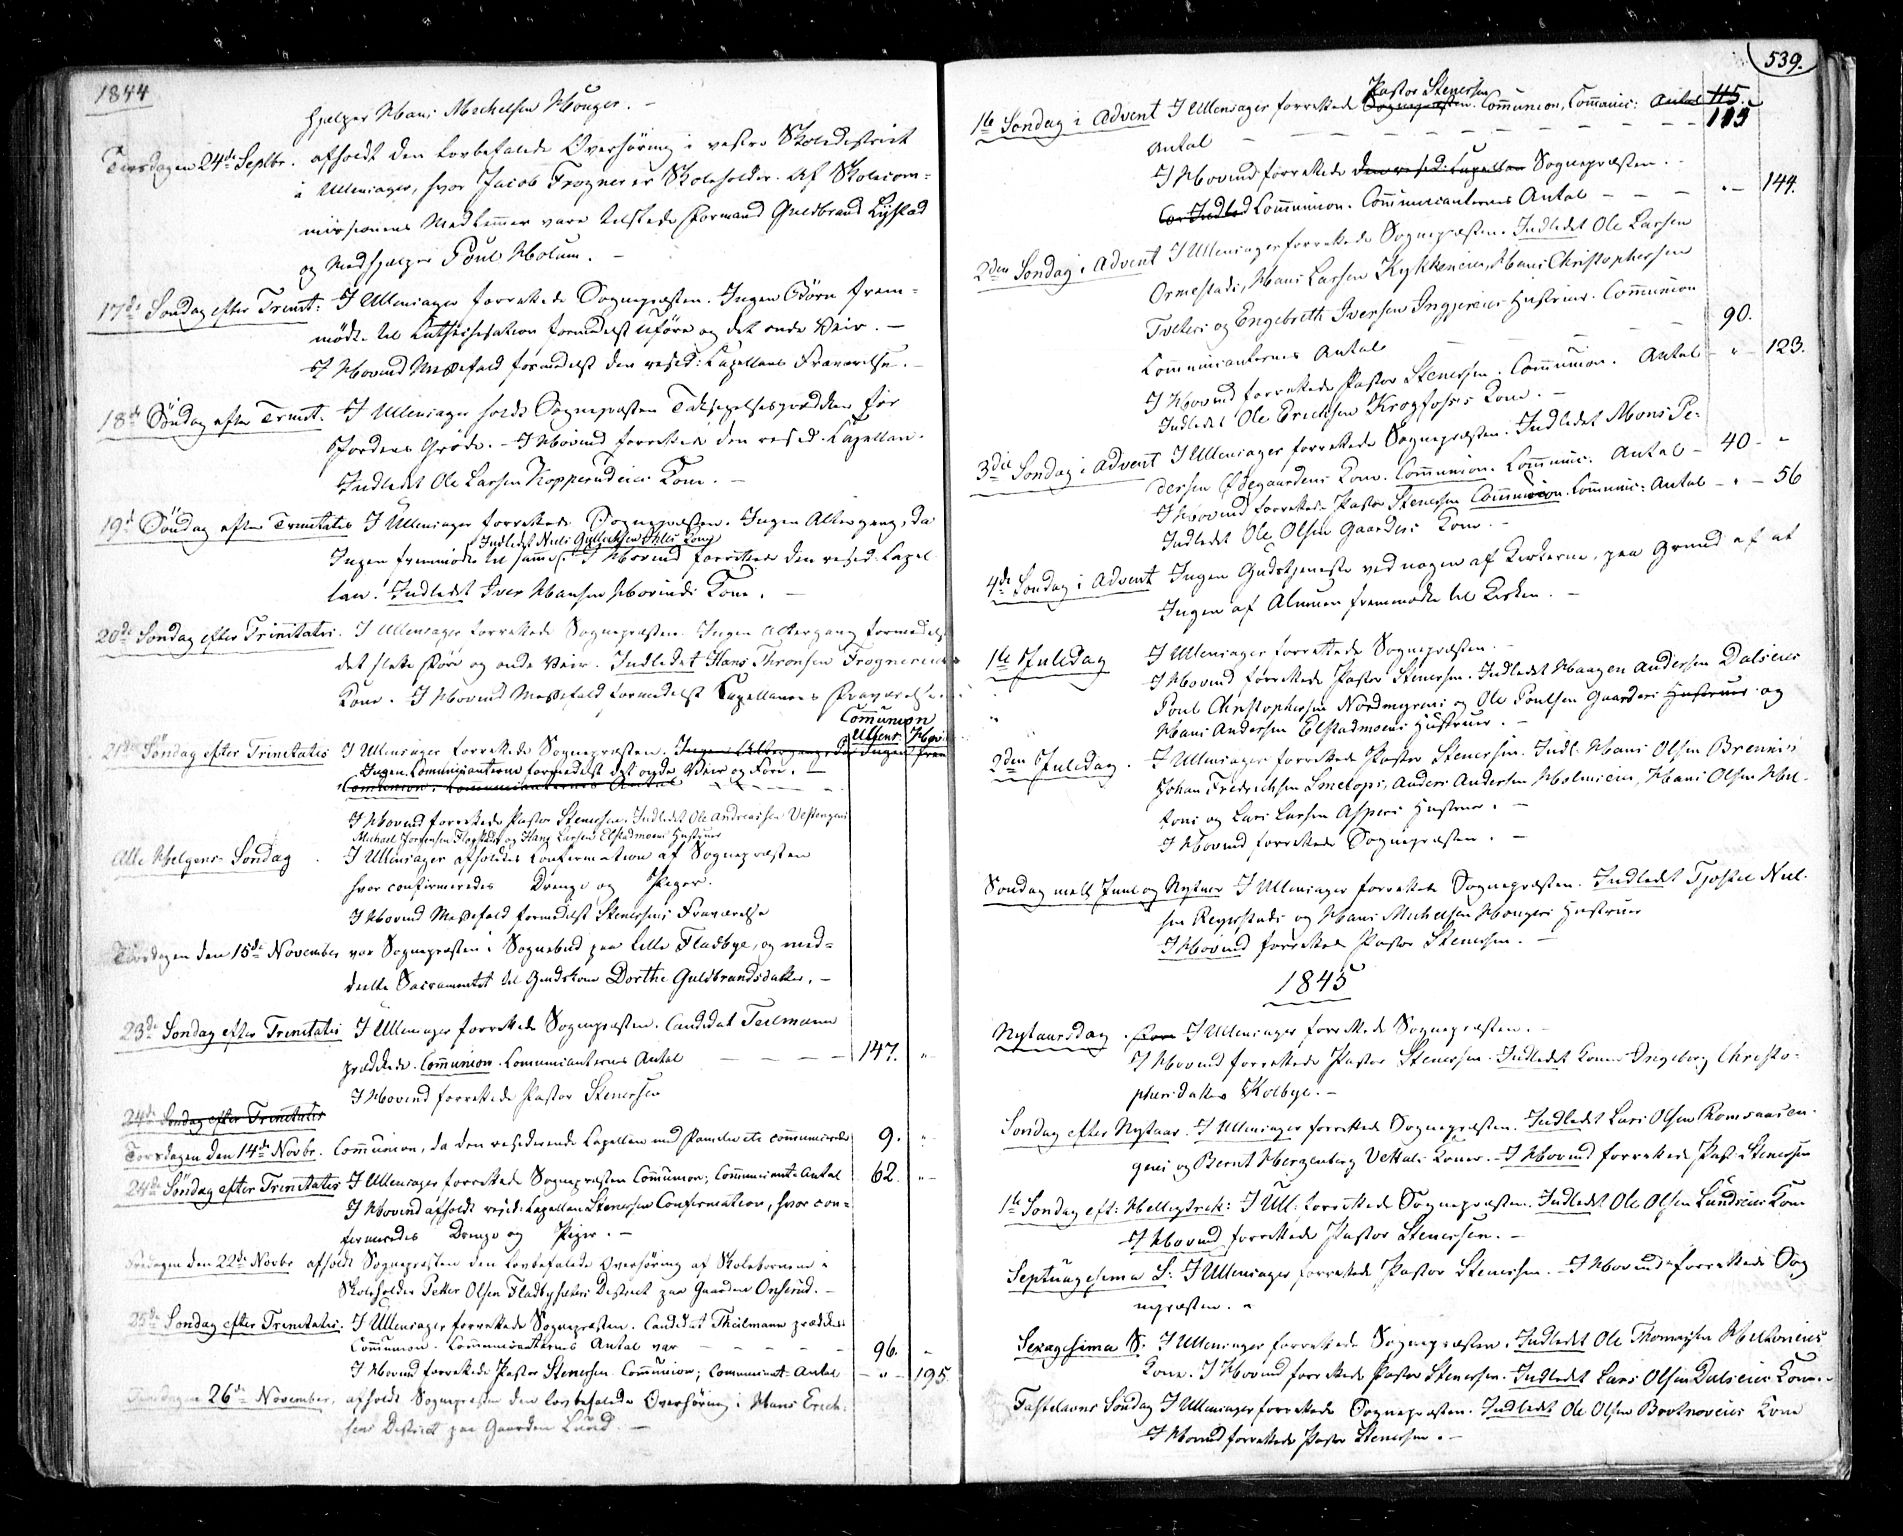 1844
Hjelper Hans Mechelsen Houger. –
Tirsdagen 24de Septbr. afholdt den lovbefalede Overhøring i vestre Skoledistrict
i Ullensager, hvor Jacob Frogner er Skoleholder. Af Skolecom-
missionens Medlemmer vare tilstede Formand Guldbrand Lystad
og Medhjælper Poul Holum. –
17de Søndag efter Trinit: I Ullensager forrettede Sognepræsten. Ingen Børn frem-
mødte til Catechisation formedelst uføre og det onde Veir. –
I Hovind Messefald formedelst den resid: Capellans Fraværelse. –
18de Søndag efter Trinit. I Ullensager holdt Sognepræsten Taksigelsesprædiken for
Jordens Grøde. – I Hovind forrettede den resid. Capellan.
Indledet Ole Larsen Kopperudeies Kone. –
19de Søndag efter Trinitatis I Ullensager forrettede Sognepræsten. Ingen Altergang, da
Indledet Niels Kone
Ingen fremmødte til samme. I Hovind forrettede den resid. Capel
lan. Indledet Iver Hansen Hovinds Kone. –
20de Søndag efter Trinitatis. I Ullensager forrettede Sognepræsten. Ingen Altergang formedelst
det slette Føre og onde Veir. Indledet Hans Thronsen Frognereies
Kone. I Hovind Messefald formedelst Capellanens Fraværelse.
Communion
Ullens. Hov.
21de Søndag efter Trinitatis I Ullensager forrettede Sognepræsten. Ingen Altergang da Ingen frem
Ingen Communicanterne formedelst det onde Veir og Føre. –
Communion. Communicanternes Antal
I Hovind forrettede Pastor Stenersen. Indledet Ole Andreassen Vestengens
Michael Jørgensen og Hans Larsen Elstadmoens Hustruer
Alle Helgens Søndag I Ullensager afholdtes Confirmation af Sognepræsten
hvor confirmeredes Drenge og Piger.
I Hovind Messefald formedelst Stenersens Fraværelse
Torsdagen den 15de November var Sognepræsten i Sognebud paa lille Fladbye, og med-
deelte Sacramentet til Dorthe Guldbrandsdatter. –
23de Søndag efter Trinitatis I Ullensager forrettede Sognepræsten. Candidat Teilmann
prædikede. Communion. Communicanternes Antal – – – – 147. "
I Hovind forrettede Pastor Stenersen
24de Søndag efter Trinitatis
Torsdagen den 14de Novbr. Communion, da den residerende Capellan med Familie communicerede 9. "
24de Søndag efter Trinitatis I Ullensager forrettede Sognepræsten Communion; Communicant: Antal 62. "
I Hovind afholdt resid: Capellan Stenersen Confirmation, hvor con-
firmeredes Drenge og Piger. –
Fredagen den 22de Novbr afholdt Sognepræsten den lovbefalede Overhøring af Skolebørnene i
Skoleholder Petter Olsen Fladbysæters District paa Gaarden Onsrud. –
25de Søndag efter Trinitatis. I Ullensager forrettede Sognepræsten. Candidat Theilmann prædiked
Communion. Communicanternes Antal var – – – – – 96. "
I Hovind forrettede Pastor Stenersen Communion; Communicant: Antal – " – 195
Tirsdagen 26de November, afholdt Sognepræsten den lovbefalede Overhøring i Hans Erich-
sens District paa Gaarden Lund. –
539.
Pastor Stenersen
1te Søndag i Advent I Ullensager forrettede Sognepræsten. Communion, Communic: Antal 115.
Antal – – – – – – – – – – 115
I Hovind forrettede den resid: Capellan Sognepræsten. –
Communion. Communicanternes Antal – – – " – 144.
2den Søndag i Advent I Ullensager forrettede Sognepræsten. Indledet Ole Larsen
Ormestads, Hans Larsen Kykkeneies, Hans Christophersen
Tveters og Engebreth Iversen Hustruer. Communion
Communicanternes Antal – – – – – 90.
I Hovind forrettede Pastor Stenersen. Communion. Antal – " – 123.
Indledet Ole Erichsen Krogfoss's Kone. –
3die Søndag i Advent I Ullensager forrettede Sognepræsten. Indledet Mons Pe-
dersen Ødegaardens Kone. Communion. Communic: Antal – 40 – "
I Hovind forrettede Pastor Stenersen Communion. Communic: Antal – " – 56
Indledet Ole Olsen Gaarders Kone. –
4de Søndag i Advent Ingen Gudstjeneste ved nogen af Kirkerne, paa Grund af at
Ingen af Almuen fremmødte til Kirken. –
1te Juledag I Ullensager forrettede Sognepræsten. –
" I Hovind forrettede Pastor Stenersen. Indledet Haagen Andersen Dalseies
" Poul Christophersen Nordmyrens og Ole Poulsen Gaarders Hustruer og
Hans Andersen Elstadmoens Hustruer. –
2den Juledag. I Ullensager forrettede Pastor Stenersen. Indl: Hans Olsen Brennis
Johan Fredrichsen Smetops, Anders Andersen Holmseies, Hans Olsen Hel-
tons og Lars Larsen Aspers Hustruer. –
I Hovind forrettede Sognepræsten. –
Søndag mell Juul og Nytaar I Ullensager forrettede Sognepræsten. Indledet Tjøstel Niel-
sen Reyerstads og Hans Michelsen Hougers Hustruer
I Hovind forrettede Pastor Stenersen. –
1845
Nytaarsdag. I Ullensager forrettede Sognepræsten. –
I Hovind forrettede Pastor Stenersen. Indledet Konen Ingeborg Christo-
phersdatter Kolbye. –
Søndag efter Nytaar. I Ullensager forrettede Sognepræsten. Indledet Lars Olsen Romsaasen-
geies og Bernt Hertzenberg Vettals Koner. – I Hovind forrettede Past. Stenersen
1te Søndag eft: Helligtrek: I Ull: forrettede Sognepræsten. Indledet Ole Olsen Lundseies Kone
I Hovind forrettede Pastor Stenersen. –
Septuagesima S: I Ullensager forrettede Pastor Stenersen. – I Hovind forrettede Sog
nepræsten. "
Sexagesima S. I Ullensager forrettede Sognepræsten. Indledet Ole Thomesen Heltoneies
Kone. I Hovind forrettede Pastor Stenersen. Indledet Lars Olsen Dalseies Kone. –
Fastelavns Søndag I Ullensager forrettede Sognepræsten. Indledet Ole Olsen Kone
I Hovind forrettede Pastor Stenersen. –